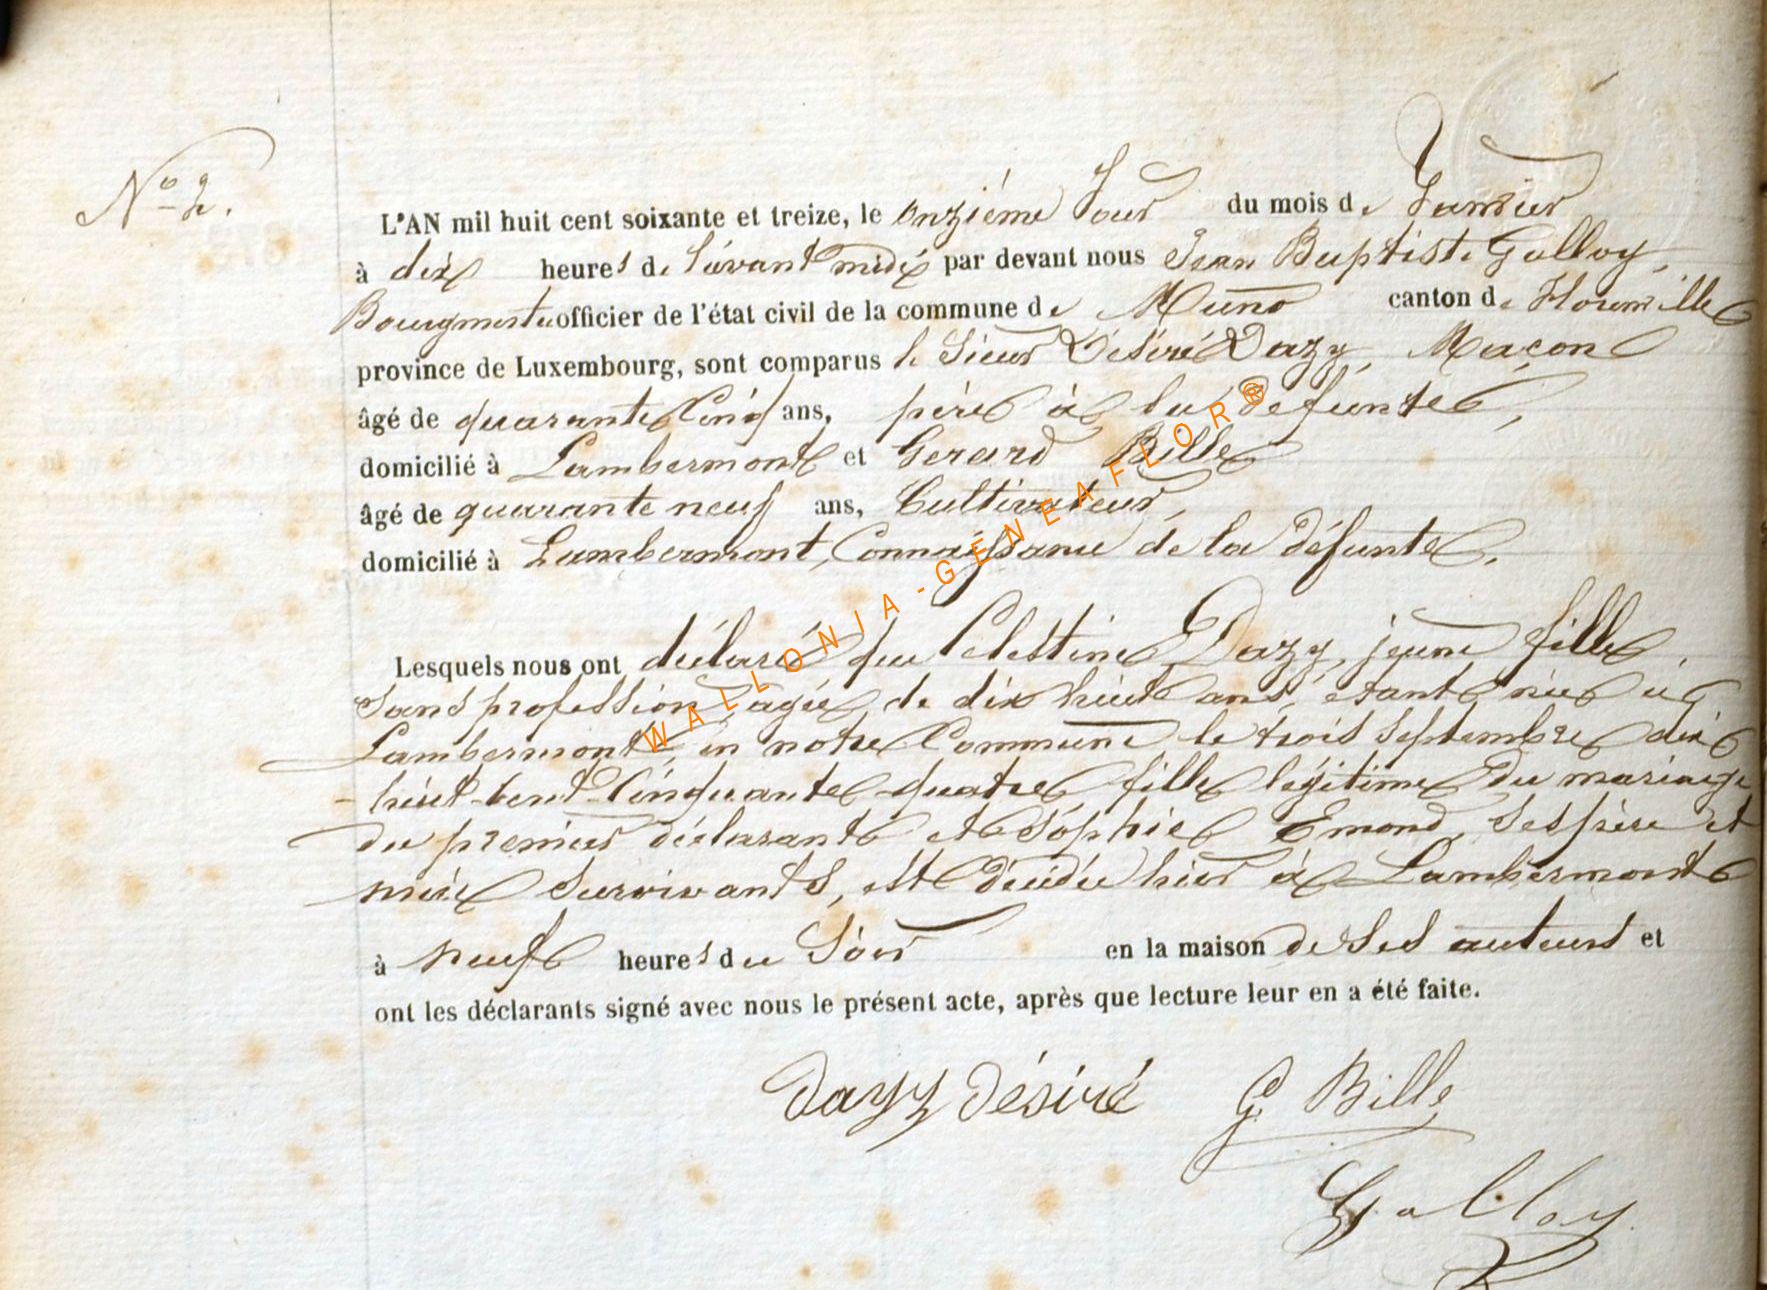 No 2.
L'AN mil huit cent soixante et treize, le onzième Jour du mois de Janvier
à dix heures de l'avant midi par devant nous Jean Baptiste Galloy,
Bourgmestre officier de l'état civil de la commune de Muno canton de Florenville
province de Luxembourg, sont comparus le Sieur Désiré Dazy, Maçon
âgé de quarante Cinq ans, père à la défunte,
domicilié à Lambermont et Gerard Bille
âgé de quarante neuf ans, Cultivateur,
domicilié à Lambermont, Connaissance de la défunte.
Lesquels nous ont déclaré que Celestine Dazy, jeune fille,
Sans profession, agée de dix huit ans, étant née à
Lambermont, en notre Commune le trois Septembre dix
huit-Cent-Cinquante-quatre fille légitime Du mariage
du premier déclarant et Sophie Emond, Ses père et
mère Survivants, est décédée hier à Lambermont
à neuf heures du Soir en la maison de Ses auteurs et
ont les déclarants signé avec nous le présent acte, après que lecture leur en a été faite.
Dazy Désiré G. Bille
Galloy
WALLONIA-GENEAFLOR®